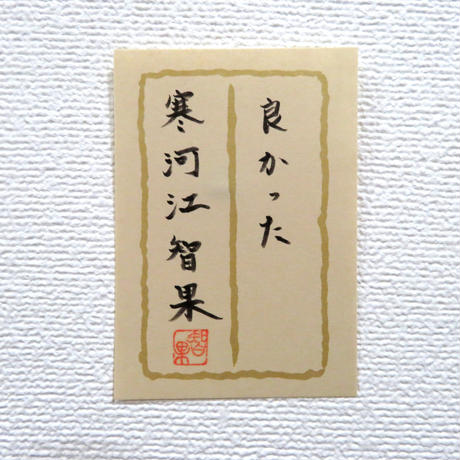 良かった
寒河江智果
智果